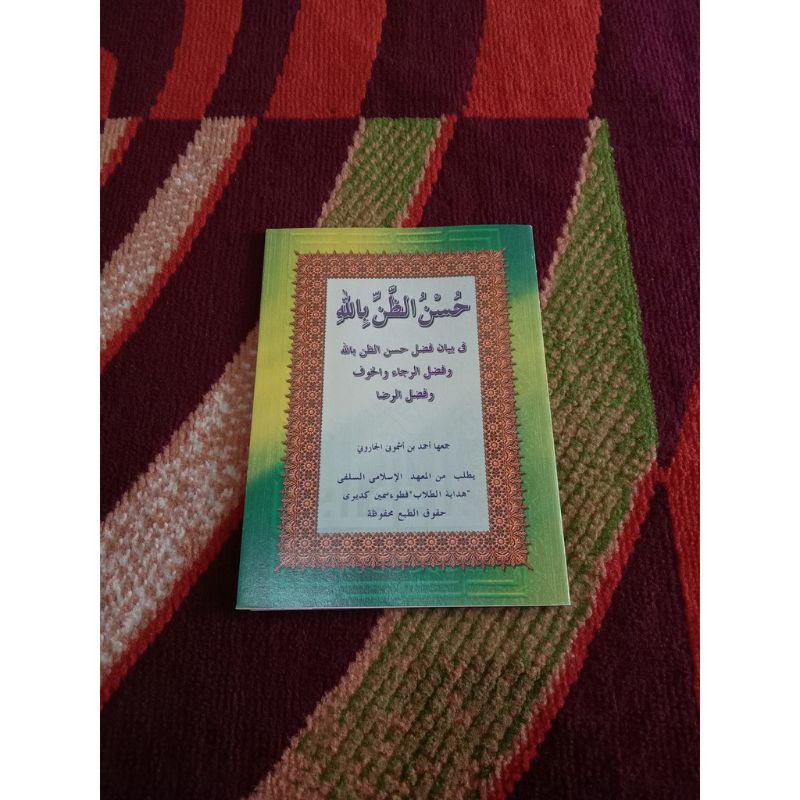 حُسْنُ الظَّنِّ بِاللهِ
فى بيان فضل حسن الظن بالله
وفضل الرجاء والخوف
وفضل الرضا
جمعها أحمد بن أشمونى الجارونى
يطلب من المعهد الإسلامى السلفى
"هداية الطلاب" فطوه سمين كديرى
حقوق الطبع محفوظة